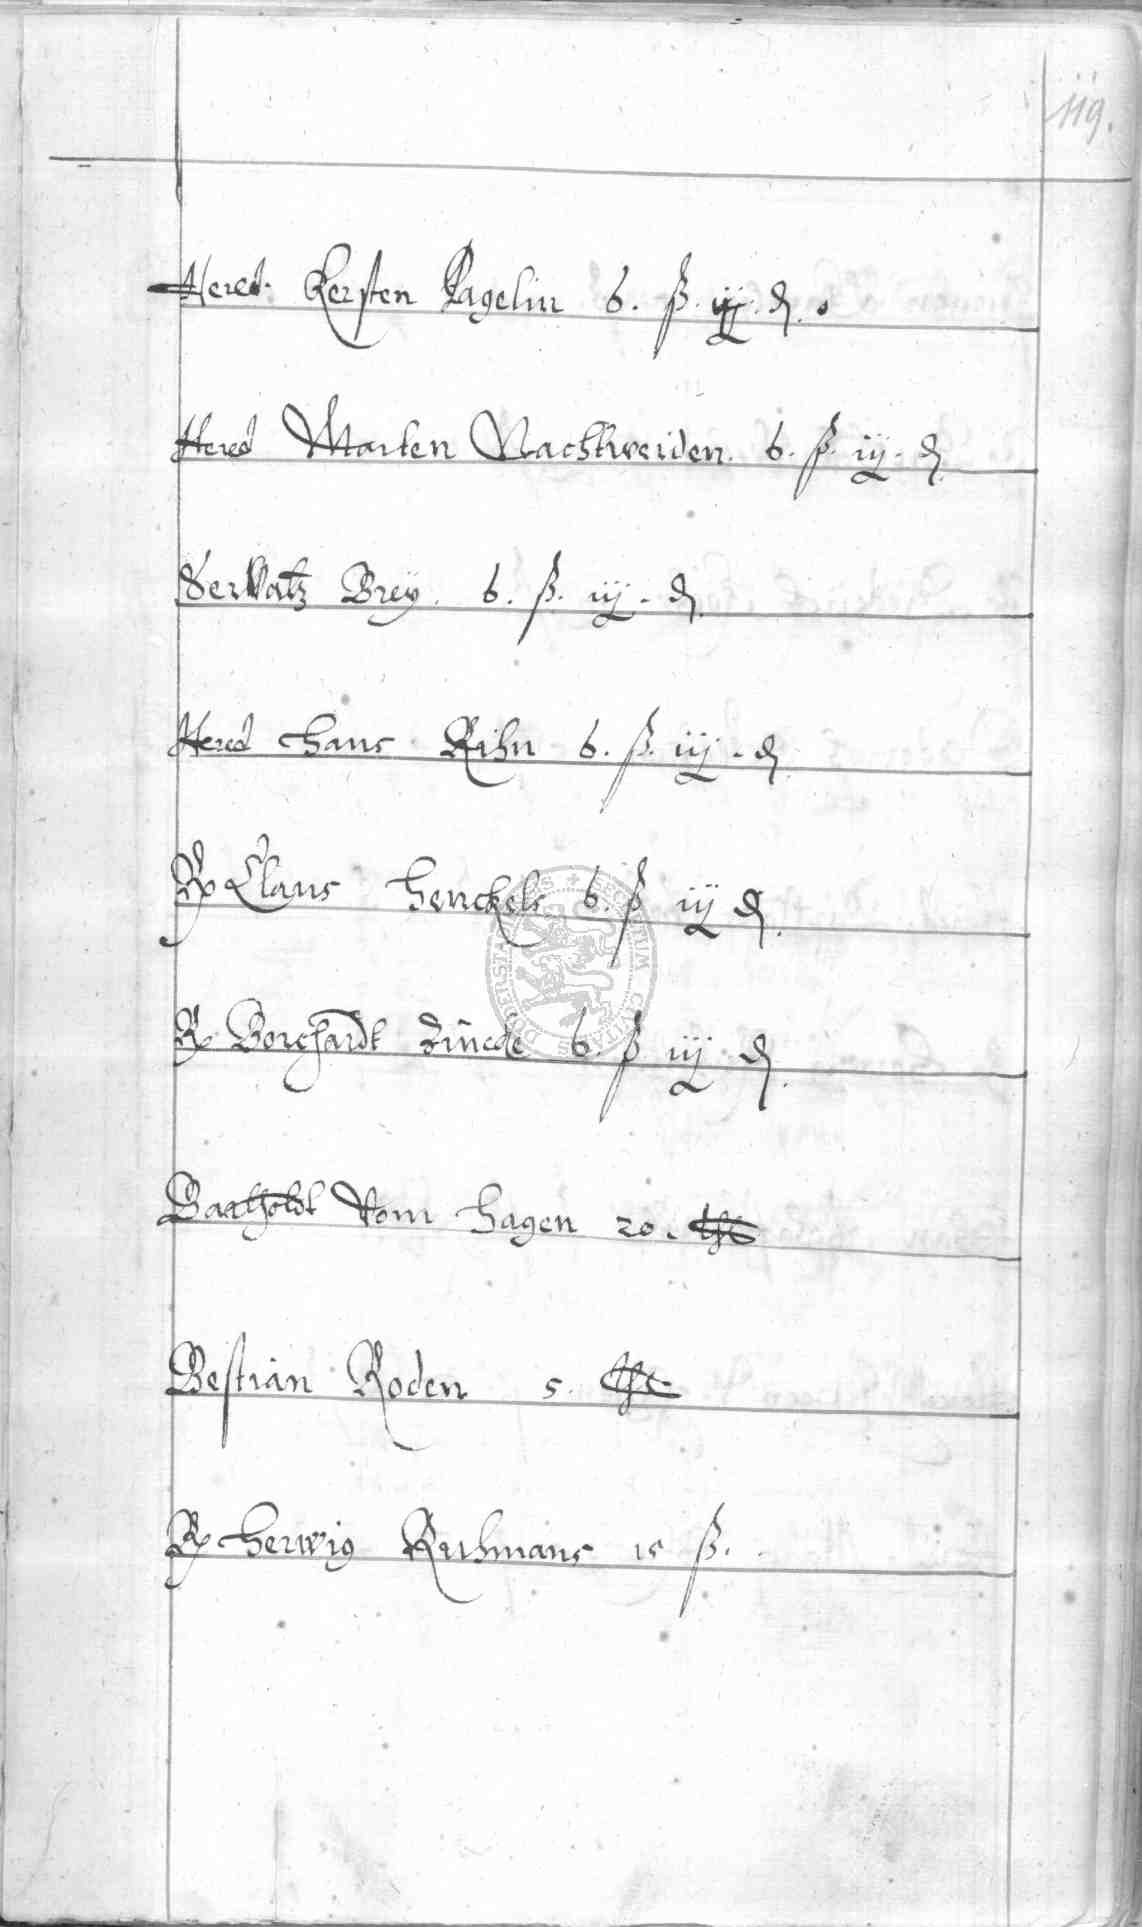 119.
Hered. Kersten Pagelin 6. ß. iij. ₰.
Hered Marten Nachtweiden. 6. ß. iij. ₰
Servatz Breÿ. 6. ß. iij. ₰
Hered Hans Kihn 6. ß. iij. ₰
Rp Claus Henckels 6. ß iij ₰
Rp Borchardt 6. ß iij ₰
Bartholdt Vom Hagen 20.
Bestian Roden 5.
Rp Herwig Ruhmans 15 ß.